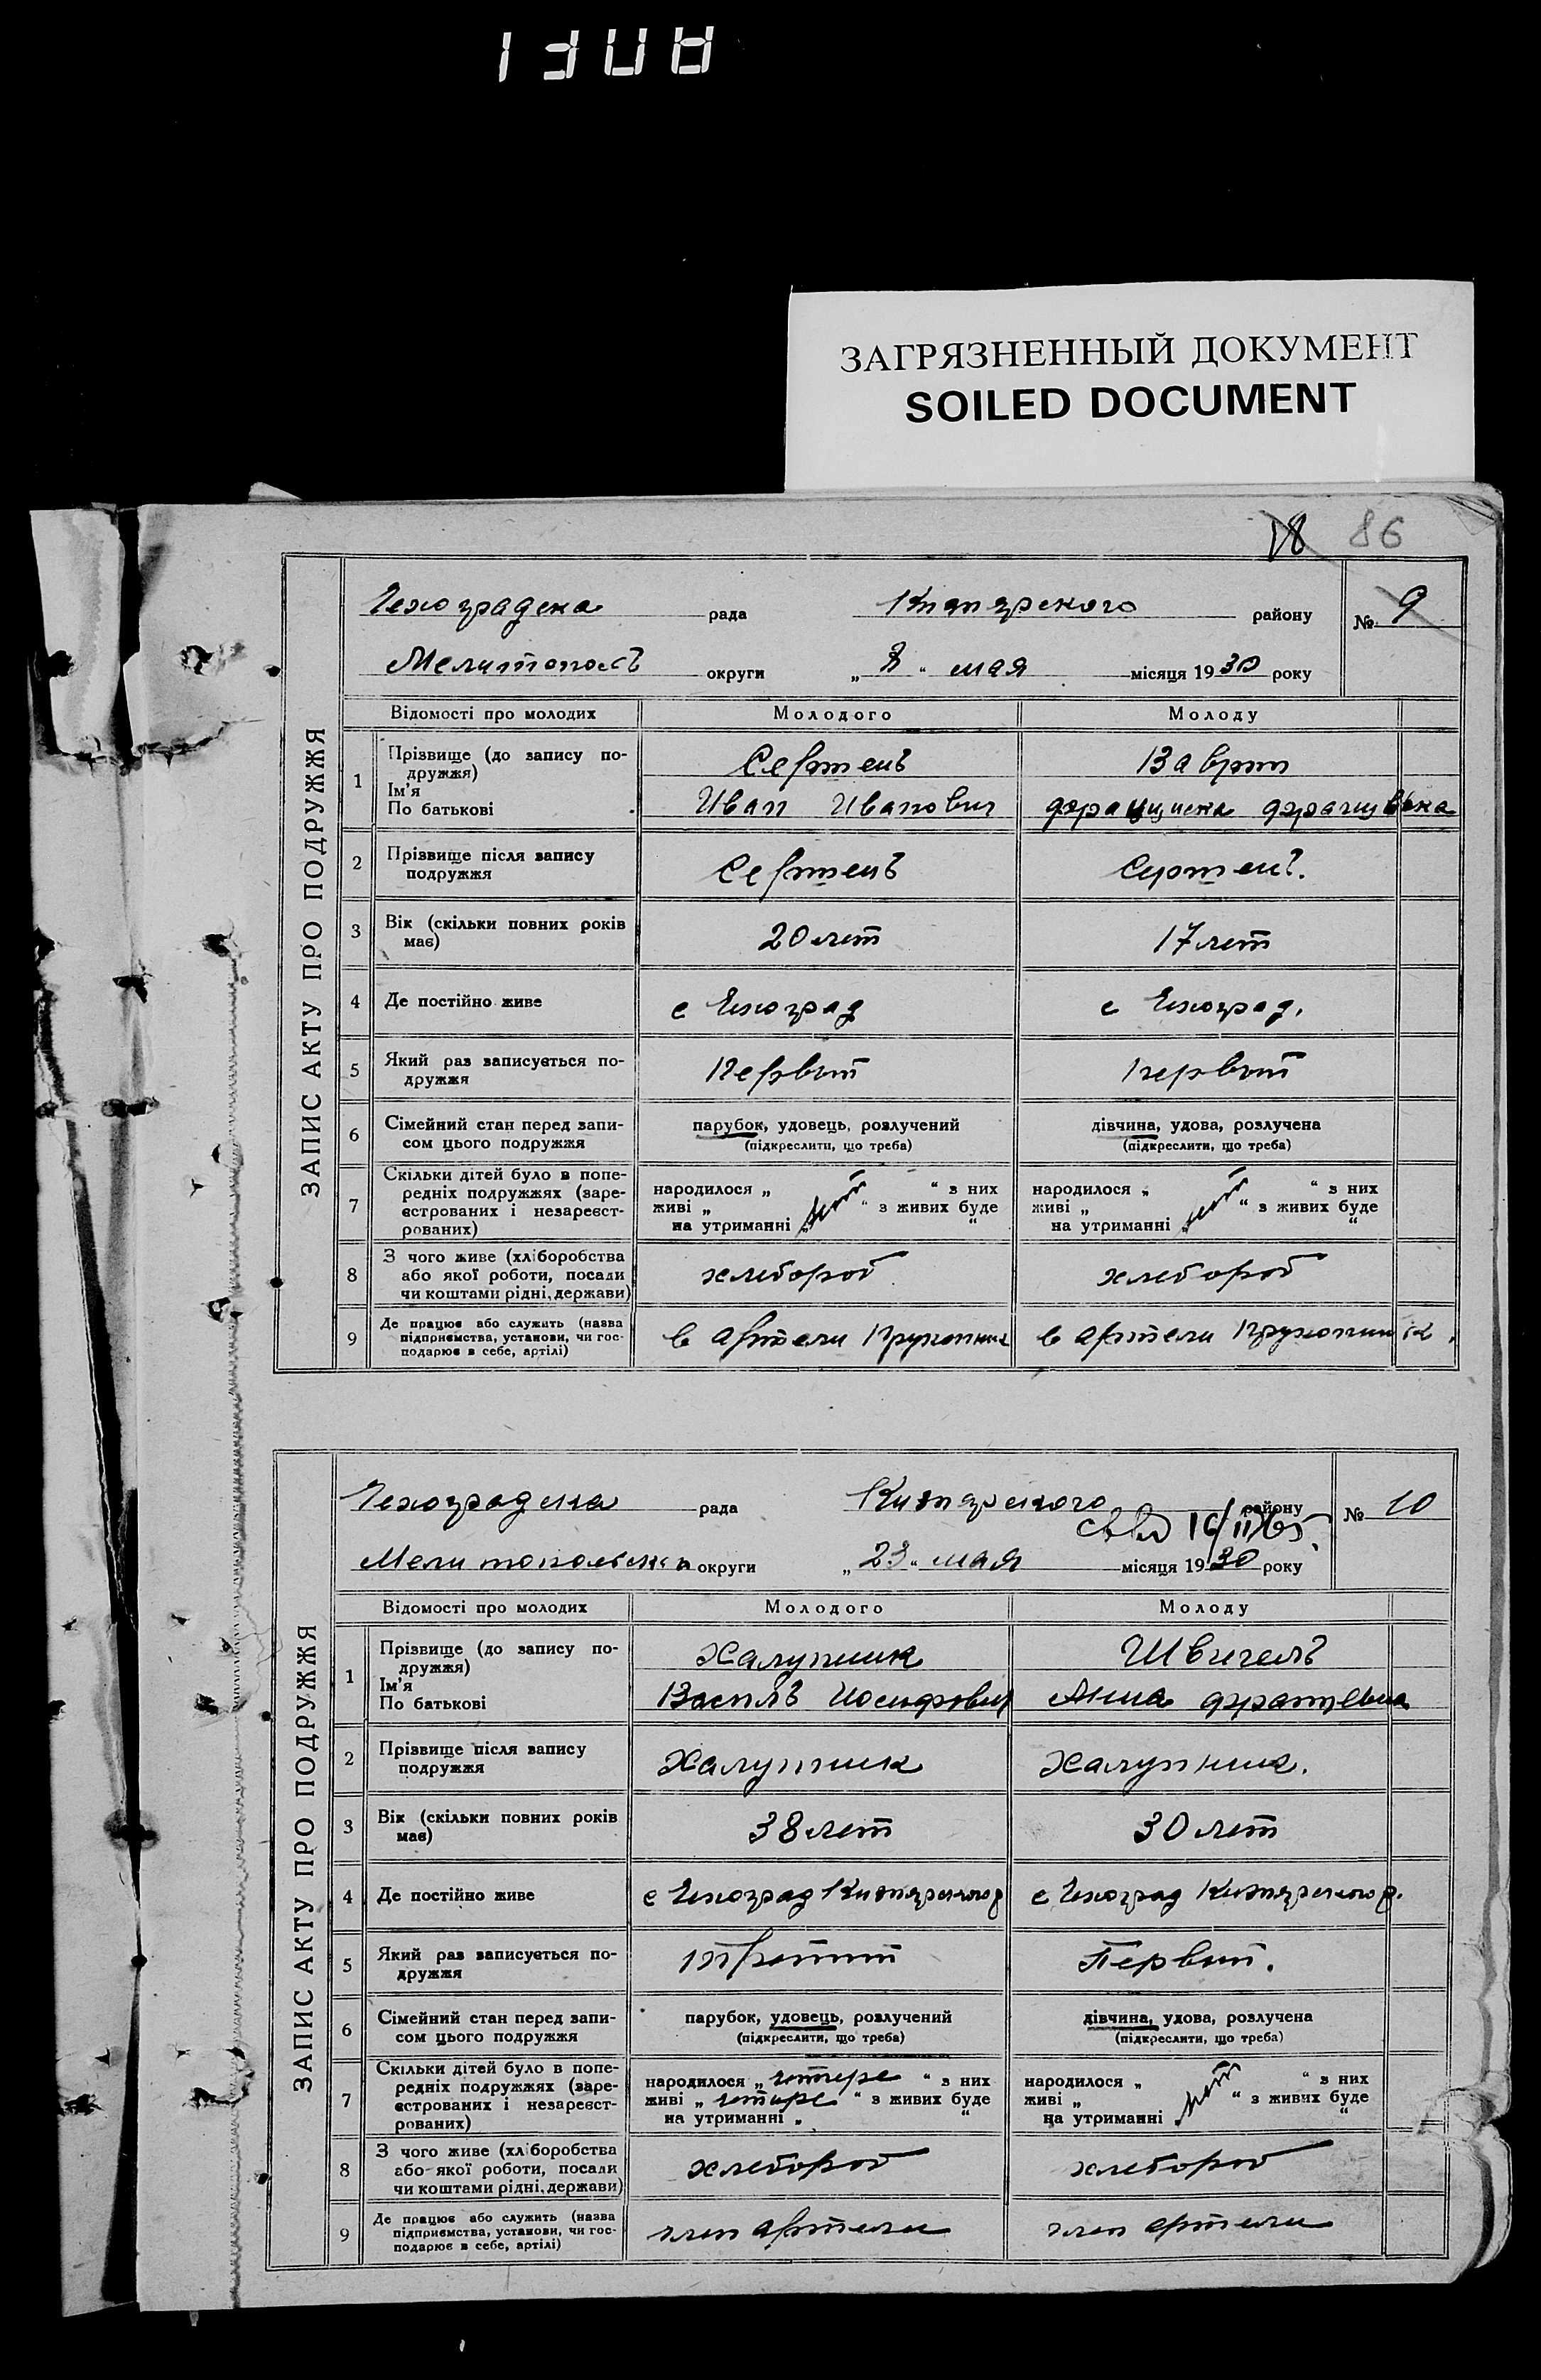 1308
ЗАГРЯЗНЕННЫЙ ДОКУМЕНТ
SOILED DOCUMENT
18 86
ЗАПИС АКТУ ПРО ПОДРУЖЖЯ
Чехоградска рада Кизиярского району № 9
Мелитополь округи „ 8 “ мая місяця 1930 року
Відомості про молодих Молодого Молоду
1 Прізвище (до запису по-
дружжя)
Ім’я
По батькові
Иван Иванович
2 Прізвище після запису
подружжя
3 Вік (скільки повних років
має)
20 лет 17 лет
4 Де постійно живе
с Чехоград с Чехоград.
5 Який раз записується по-
дружжя
Первый первый
6 Сімейний стан перед запи-
сом цього подружжя
парубок, удовець, розлучений дівчина, удова, розлучена
(підкреслити, що треба) (підкреслити, що треба)
7 Скільки дітей було в попе-
редніх подружжях (заре-
єстрованих і незареєст-
рованих)
народилося „ “ з них народилося „ “ з них
живі „ нет “ з живих буде живі „ нет “ з живих буде
на утриманні „ “ на утриманні „ “
8 З чого живе (хліборобства
або якої роботи, посади
чи коштами рідні, держави)
хлебороб хлебороб
9 Де працює або служить (назва
підприємства, установи, чи гос-
подарює в себе, артілі)
в артели в артели
ЗАПИС АКТУ ПРО ПОДРУЖЖЯ
Чехоградска рада Кизиярского району № 10
16/II 65
Мелитопольска округи „ 23 “ мая місяця 1930 року
Відомості про молодих Молодого Молоду
1 Прізвище (до запису по-
дружжя)
Ім’я
По батькові
Халупник
Иосифович Анна
2 Прізвище після запису
подружжя
Халупник Халупник.
3 Вік (скільки повних років
має)
38 лет 30 лет
4 Де постійно живе
с Чехоград Кизиярского р с Чехоград Кизиярского р.
5 Який раз записується по-
дружжя
Первый.
6 Сімейний стан перед запи-
сом цього подружжя
парубок, удовець, розлучений дівчина, удова, розлучена
(підкреслити, що треба) (підкреслити, що треба)
7 Скільки дітей було в попе-
редніх подружжях (заре-
єстрованих і незареєст-
рованих)
народилося „ четыре “ з них народилося „ “ з них
живі „ четыре “ з живих буде живі „ нет “ з живих буде
на утриманні „ “ на утриманні „ “
8 З чого живе (хліборобства
або якої роботи, посади
чи коштами рідні, держави)
хлебороб хлебороб
9 Де працює або служить (назва
підприємства, установи, чи гос-
подарює в себе, артілі)
член артели член артели